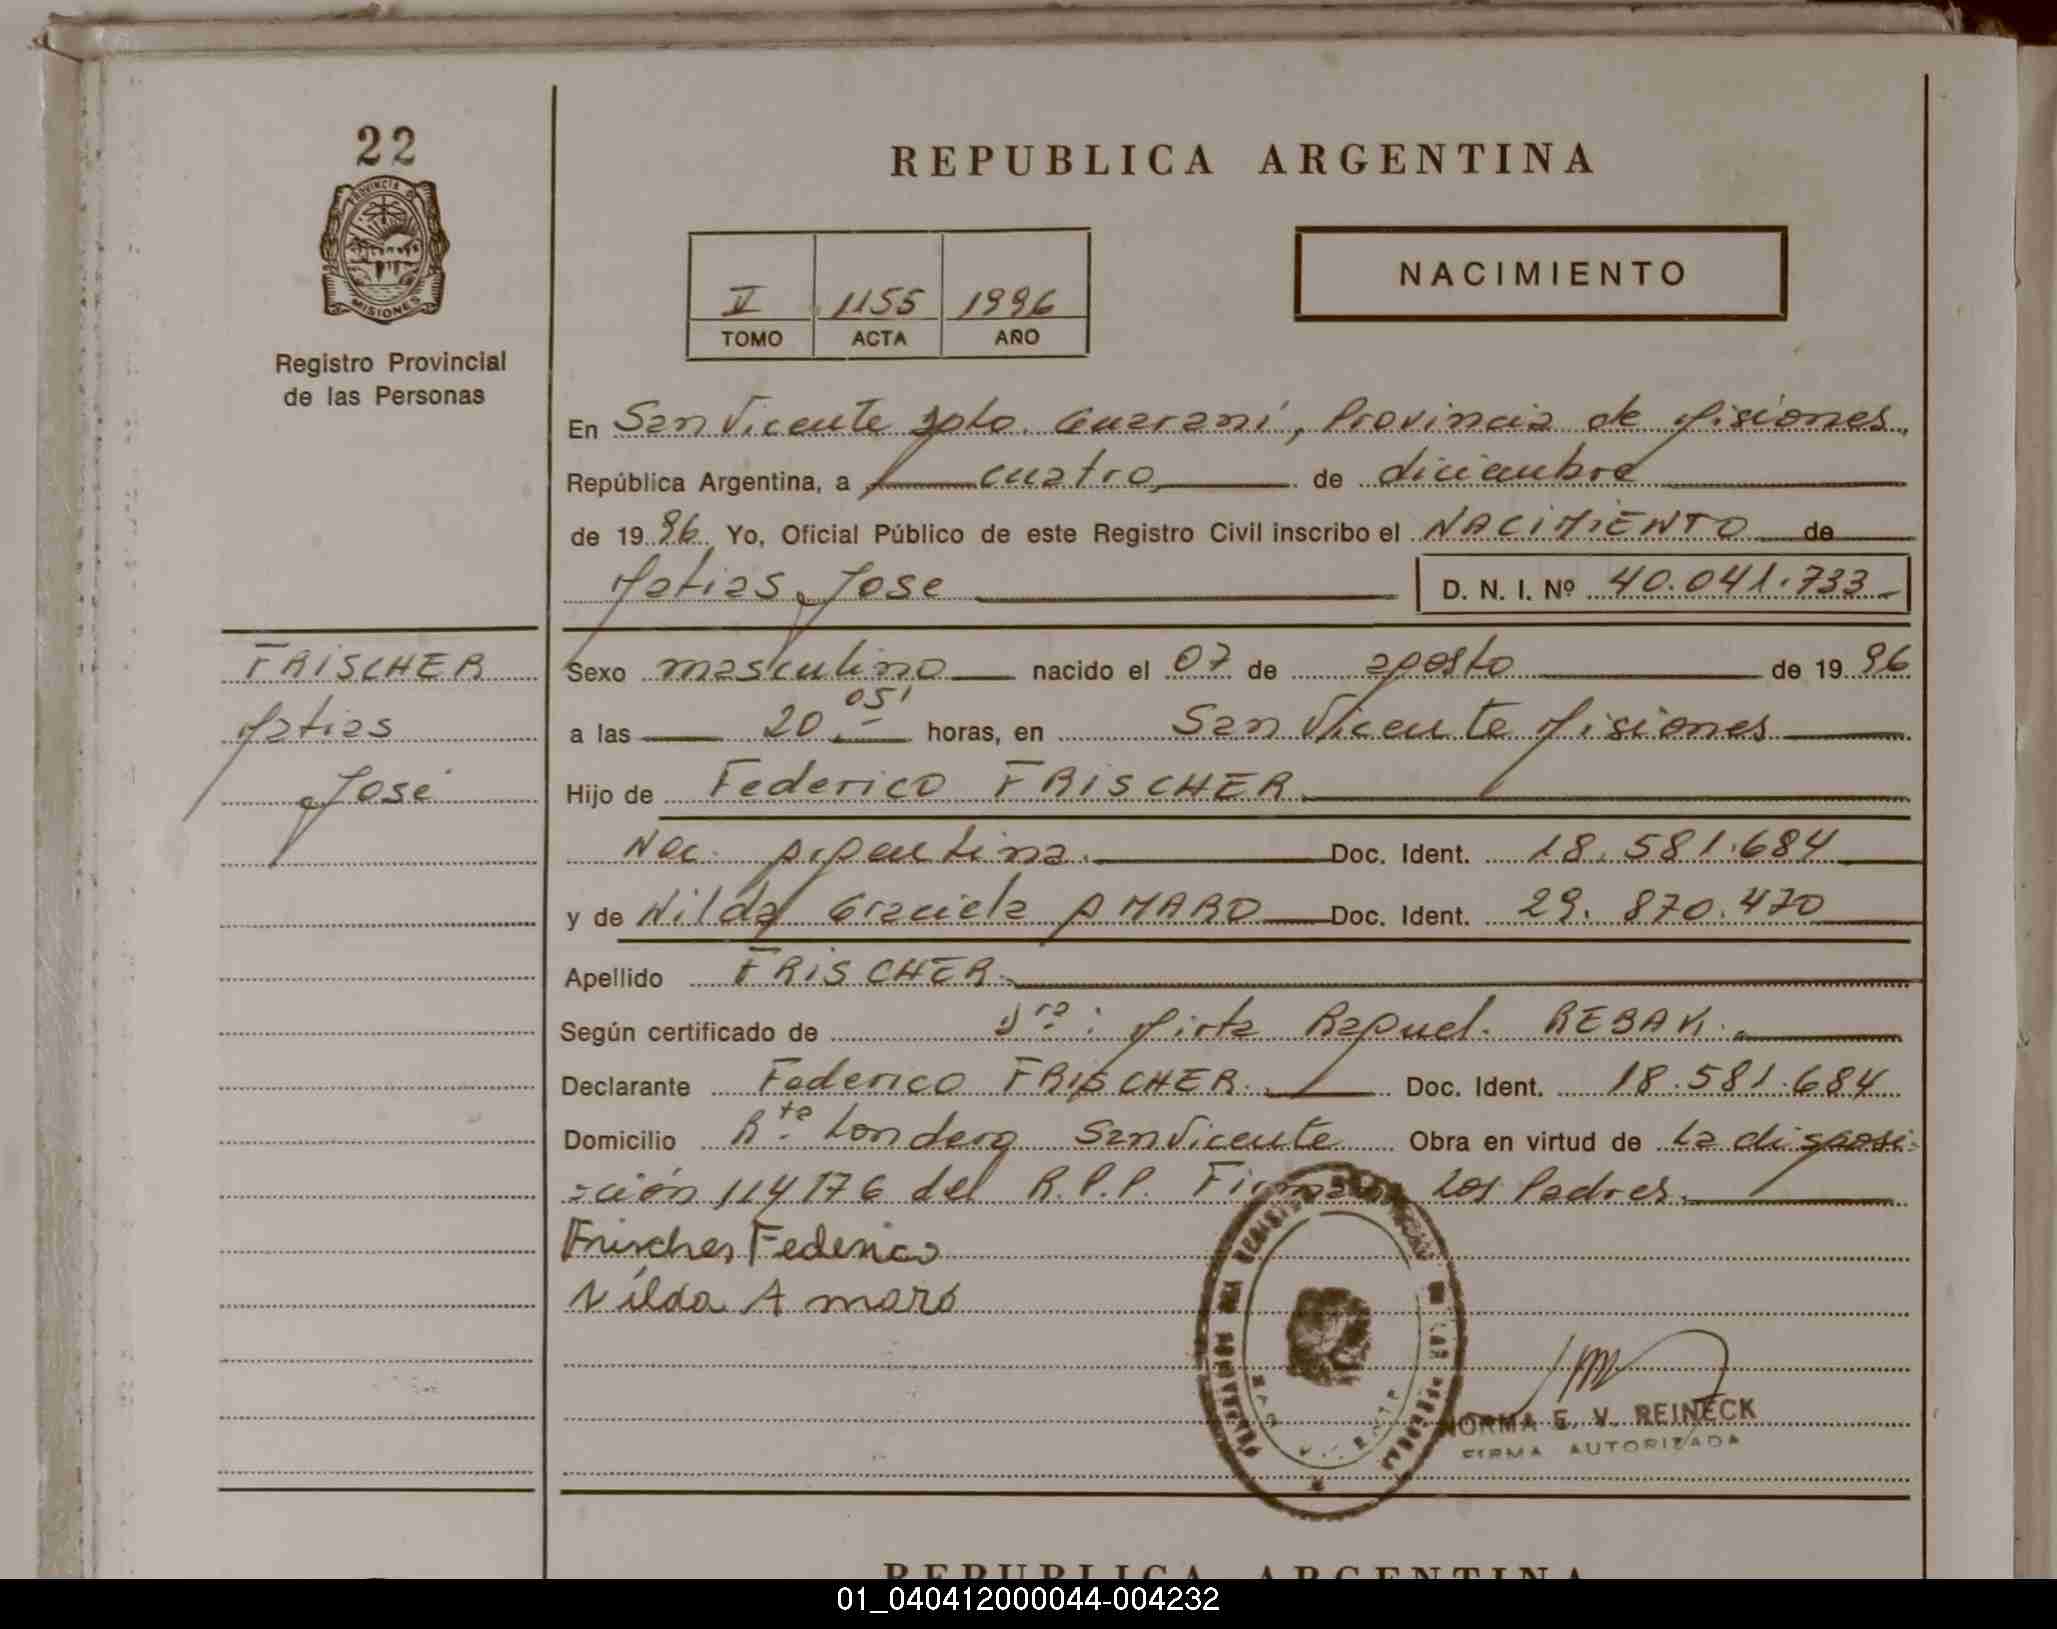 22
REPUBLICA ARGENTINA
PROVINCIA DE
MISIONES
NACIMIENTO
V 1155 1996
TOMO ACTA AÑO
Registro Provincial
de las Personas
En San Vicente Dpto. Guaraní, Provincia de Misiones,
República Argentina, a cuatro de diciembre
de 19 96 Yo, Oficial Público de este Registro Civil inscribo el NACIMIENTO de
Matias Jose D. N. I. Nº 40.041.733
FRISCHER
Matias
José
Sexo masculino nacido el 07 de agosto de 19 96
a las 20 05' horas, en San Vicente Misiones
Hijo de Federico FRISCHER
Nac. Argentina. Doc. Ident. 18.581.684
y de Nilda Graciela AMARO Doc. Ident. 29.870.470
Apellido FRISCHER
Según certificado de Dra: Mirta Raquel REBAK.
Declarante Federico FRISCHER. Doc. Ident. 18.581.684
Domicilio Rta. Londero San Vicente Obra en virtud de la disposi-
-ción 114176 del R.P.P. Firman Los Padres.
Frischer Federico
Nilda Amaro
NORMA E. V. REINECK
FIRMA AUTORIZADA
REPUBLICA ARGENTINA
01_040412000044-004232